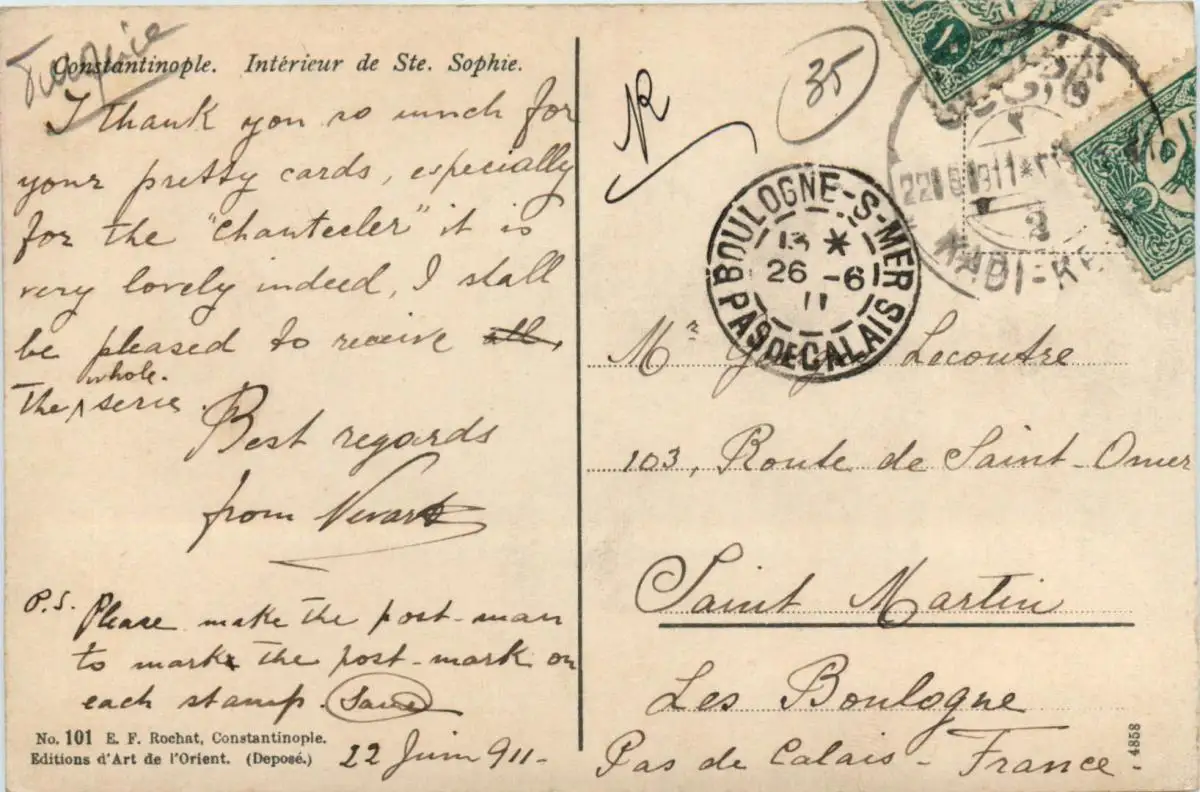 Turquie
Constantinople. Intérieur de Ste. Sophie.
I thank you so much for
your pretty cards, especially
for the "Chantecler" it is
very lovely indeed, I shall
be pleased to receive
the whole serie.
Best regards
from Nevart
P.S. Please make the post-man
to mark the post-mark on
each stamp.
No. 101 E. F. Rochat, Constantinople.
Editions d'Art de l'Orient. (Deposé.)
22 Juin 911-
35
BOULOGNE-S-MER
13 *
26 -6
11
PAS DE CALAIS
22 6 911
2
KADI-K
10
Mr Lecoutre
103, Route de Saint-Omer
Saint Martin
Les Boulogne
Pas de Calais - France -
4858